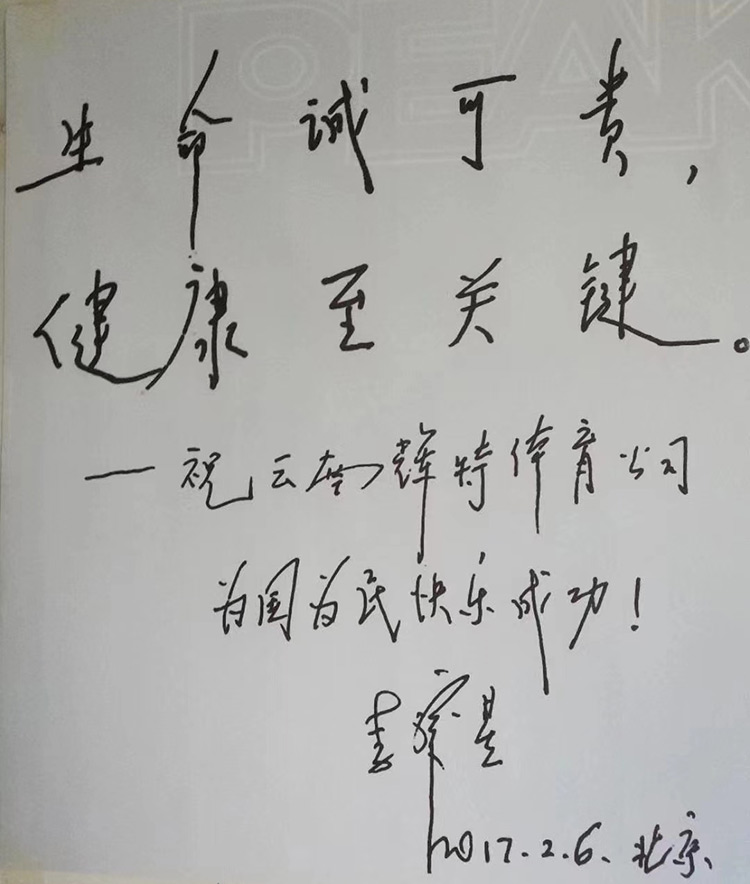 PEAK
生命诚可贵,
健康至关键。
一祝云南辉特体育公司
为国为民快乐成功!
李
2017.2.6、北京